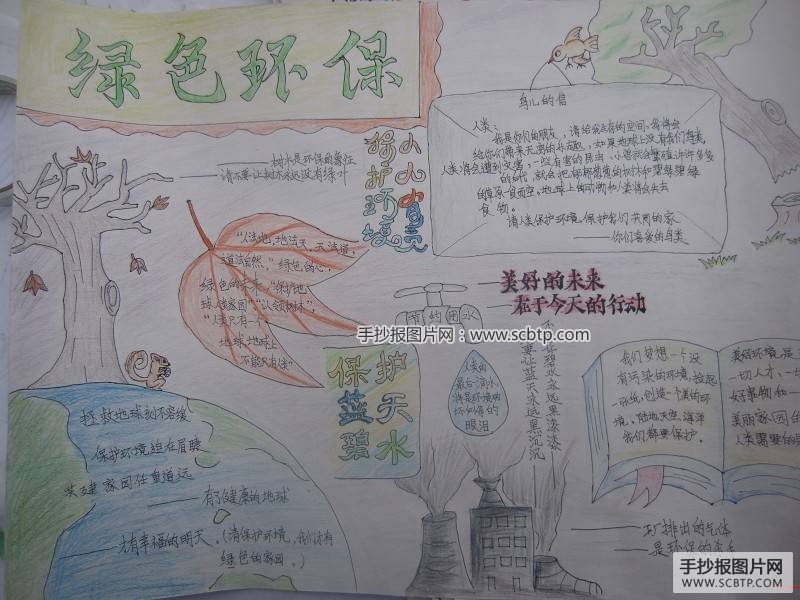 绿色环保
树木是环保的象征
请不要让树木永远没有绿叶
保护环境
人人有责
鸟儿的信
人类：
我是你们的朋友，请给我生存的空间，我将会
给你们带来无穷的乐趣，如果地球上没有我们鸟类，
人类将会遭到灾害：一些有害的昆虫、小兽就会繁殖许许多多
的后代，就会把郁郁葱葱的树木和碧绿碧绿
的草原食而空，地球上的动物和人类将会失去
食物。
请人类保护环境，保护我们共同的家
——你们喜爱的鸟类
"人法地，地法天，天法道，
道法自然，"绿色的心，
绿色的未来"保护地
球人类家园""认领树林"，
"人类只有一个
地球，地球上
不能只有人"
美好的未来
在于今天的行动
节约用水
手抄报图片网：www.scbtp.com
保护
蓝天
碧水
人类的
最后一滴水
将是环境破
坏后悔的
眼泪
不要让碧水永远黑漆漆
不要让蓝天永远黑沉沉
我们梦想一个没
有污染的环境，捡起
一张纸，创造一个美的环
境，陆地天空，海洋
我们都要保护。
美好环境，是
一切人才、一
好事物和一
美丽家园的
人类需要的
拯救地球刻不容缓
保护环境迫在眉睫
共建家园任重道远
——有了健康的地球
——才有幸福的明天。（请保护环境，我们才有
绿色的家园。）
工厂排出的气体
是环保的杀手
手抄报图片网
WWW.SCBTP.COM